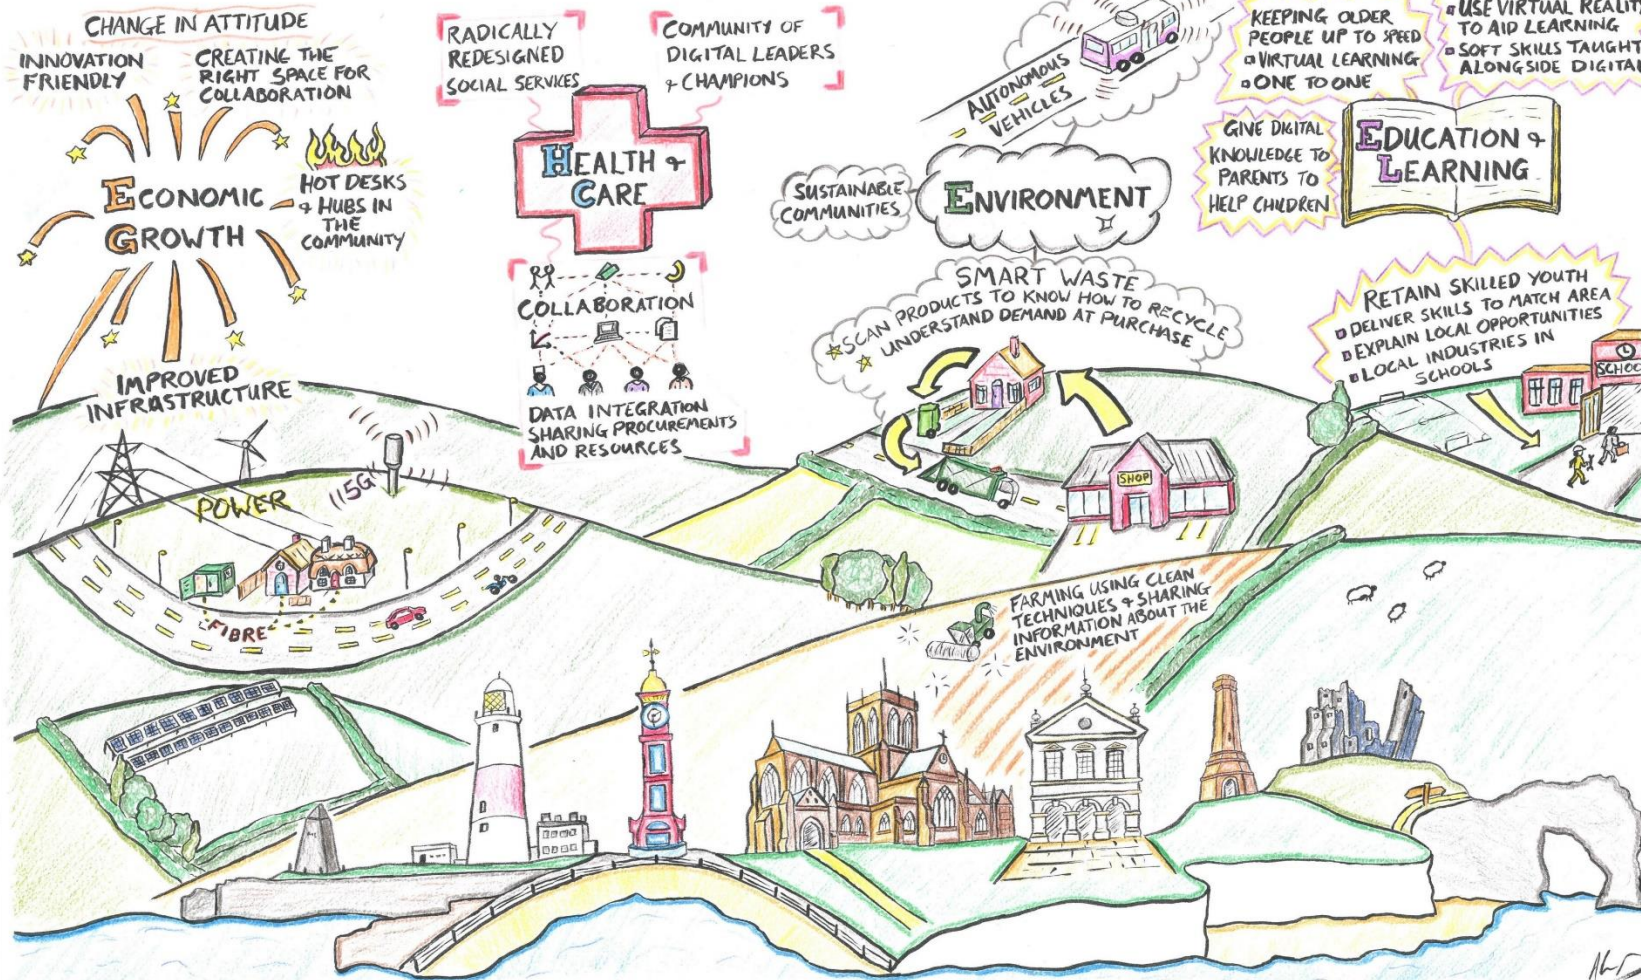 CHANGE IN ATTITUDE
INNOVATION
FRIENDLY
CREATING THE
RIGHT SPACE FOR
COLLABORATION
ECONOMIC
GROWTH
HOT DESKS
& HUBS IN
THE
COMMUNITY
IMPROVED
INFRASTRUCTURE
POWER
5G
FIBRE
RADICALLY
REDESIGNED
SOCIAL SERVICES
COMMUNITY OF
DIGITAL LEADERS
& CHAMPIONS
HEALTH &
CARE
COLLABORATION
DATA INTEGRATION
SHARING PROCUREMENTS
AND RESOURCES
AUTONOMOUS
VEHICLES
SUSTAINABLE
COMMUNITIES
ENVIRONMENT
SMART WASTE
SCAN PRODUCTS TO KNOW HOW TO RECYCLE
UNDERSTAND DEMAND AT PURCHASE
SHOP
FARMING USING CLEAN
TECHNIQUES & SHARING
INFORMATION ABOUT THE
ENVIRONMENT
KEEPING OLDER
PEOPLE UP TO SPEED
VIRTUAL LEARNING
ONE TO ONE
USE VIRTUAL REALITY
TO AID LEARNING
SOFT SKILLS TAUGHT
ALONGSIDE DIGITAL
GIVE DIGITAL
KNOWLEDGE TO
PARENTS TO
HELP CHILDREN
EDUCATION &
LEARNING
RETAIN SKILLED YOUTH
DELIVER SKILLS TO MATCH AREA
EXPLAIN LOCAL OPPORTUNITIES
LOCAL INDUSTRIES IN
SCHOOLS
SCHOO